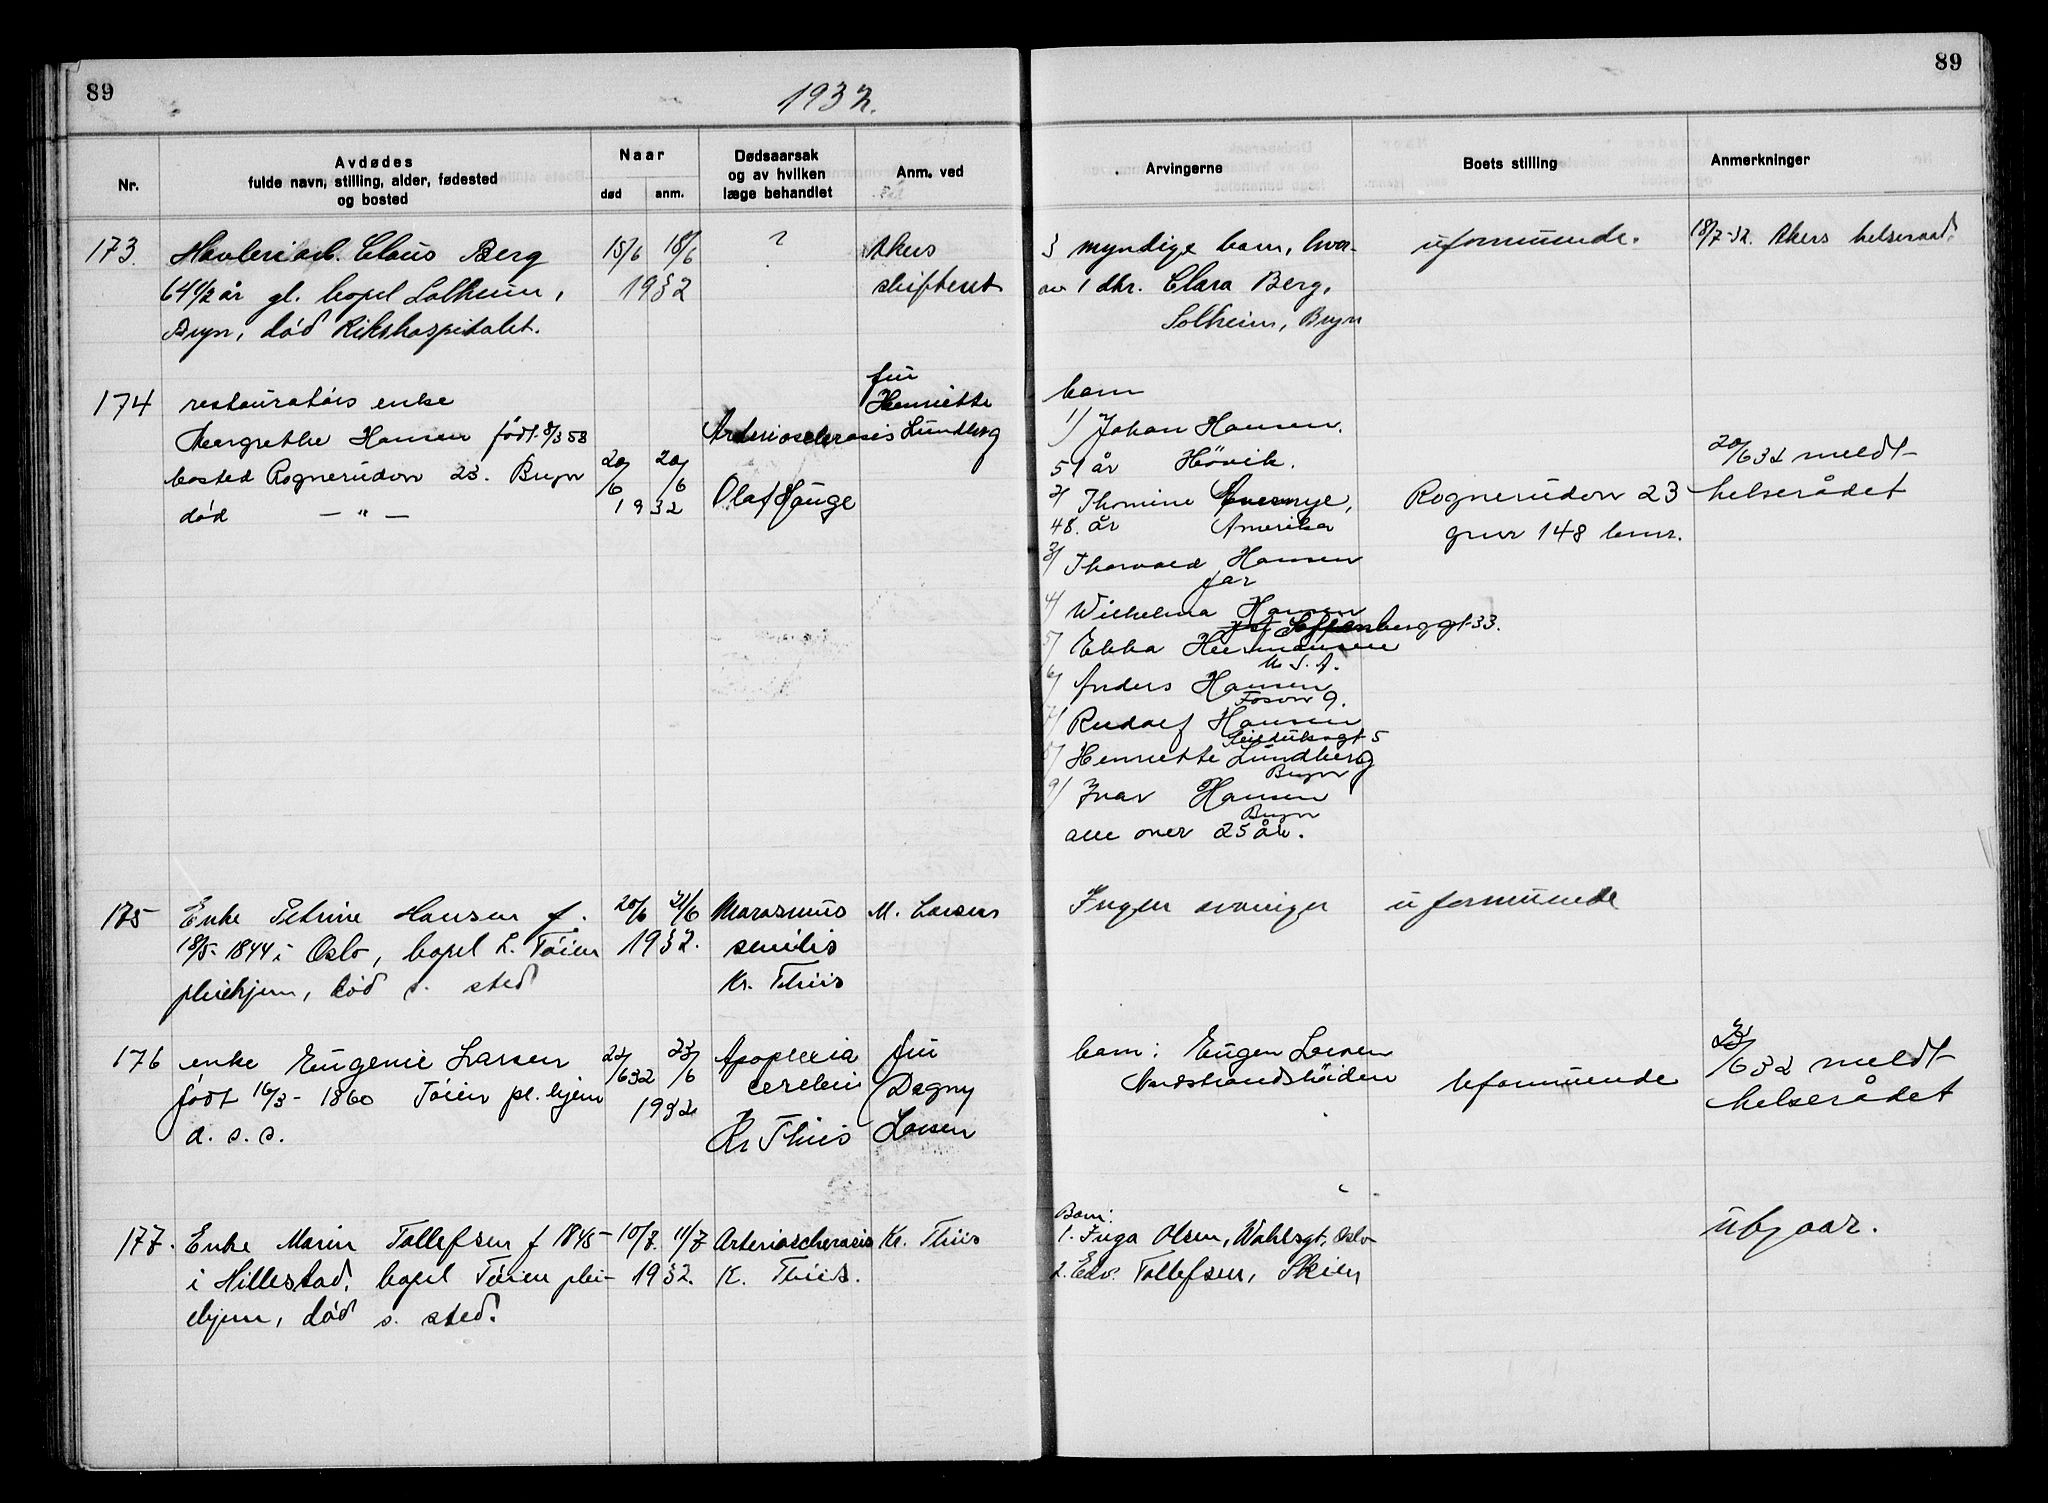 89
1932.
89
Nr.
Avdødes
fulde navn, stilling, alder, fødested
og bosted
Naar
død
anm.
Dødsaarsak
og av hvilken
læge behandlet
Anm. ved
Arvingerne
Boets stilling
Anmerkninger
173.
Claus Berg
64 1/2 år gl. bopel Solheim,
Bryn, død Rikshospitalet.
15/6 18/6
1932
?
Akers
skifteret
3 myndige barn, hvor-
av 1 dtr. Clara Berg,
Solheim, Bryn
uformuende.
18/7-32. Akers helseraad.
174
restauratørs enke
Margrethe Hansen født 8/3 58
bosted Rognerudvn 23. Bryn
død — " —
20/6 20/6
1932
Arteriosclerosis
Olaf Hauge
fru
Henriette
Lundberg
barn
1/ Johan Hansen.
51 år Høvik.
2/ Thomine
48. år Amerika
3/ Thorvald Hansen
4/ Wilhelma Hansen
Seffenberggt 33.
5/ Ebba Hermansen
U.S.A.
6/ Anders Hansen
9.
7/ Rudolf Hansen
5
8/ Henriette Lundberg
Bryn
9/ Ivar Hansen
Bryn
alle over 25 år.
Rognerudvn 23
gnr 148 bnr.
20/6 32 meldt
helserådet
175
Enke Petrine Hansen f.
18/5-1844 i Oslo, bopel L. Tøien
pleiehjem, død s. sted
20/6 21/6
1932.
Marasmus
senilis
Kr. Thiis
M. Larsen
Ingen arvinger
uformuende
176
enke Eugenie Larsen
født 16/3-1860 Tøien pl. hjem
d. s. s.
22/6 32 23/6
1932
Apoplexia
cerebri
Kr Thiis
fru
Dagny
Larsen
barn: Eugen Larsen
Nordstrandshøiden
Uformuende
23/6 32 meldt
helserådet
177.
Enke Maren Tollefsen f 1845
i Hillestad, bopel Tøien plei-
ehjem, død s. sted.
10/7. 11/7
1932.
Arteriosclerosis
K. Thiis.
Kr. Thiis
Barn:
1. Inga Olsen, Wahlsgt. Oslo
2. Edv. Tollefsen, Skien